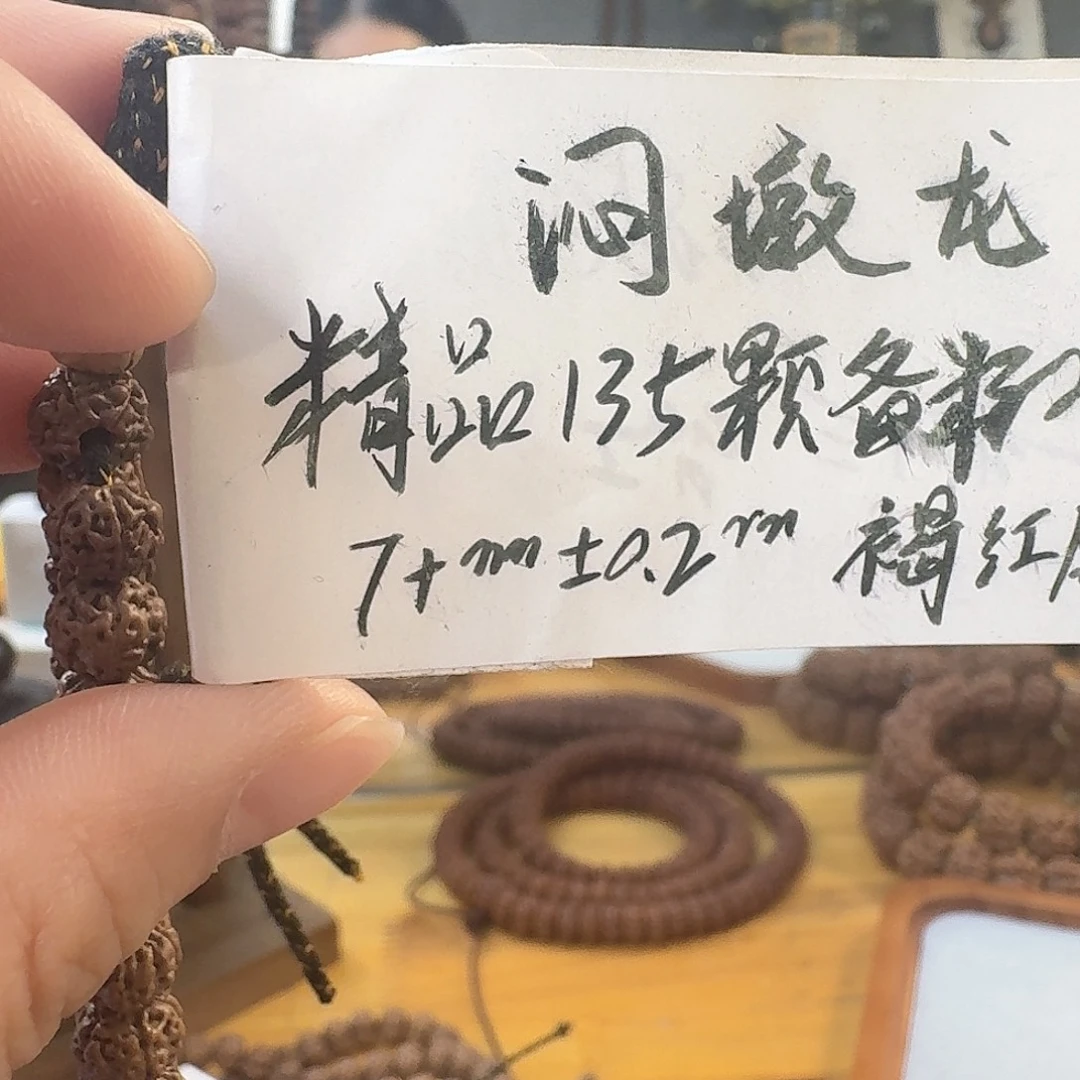 闷墩龙
精品135颗备籽
7+mm±0.2mm 褐红